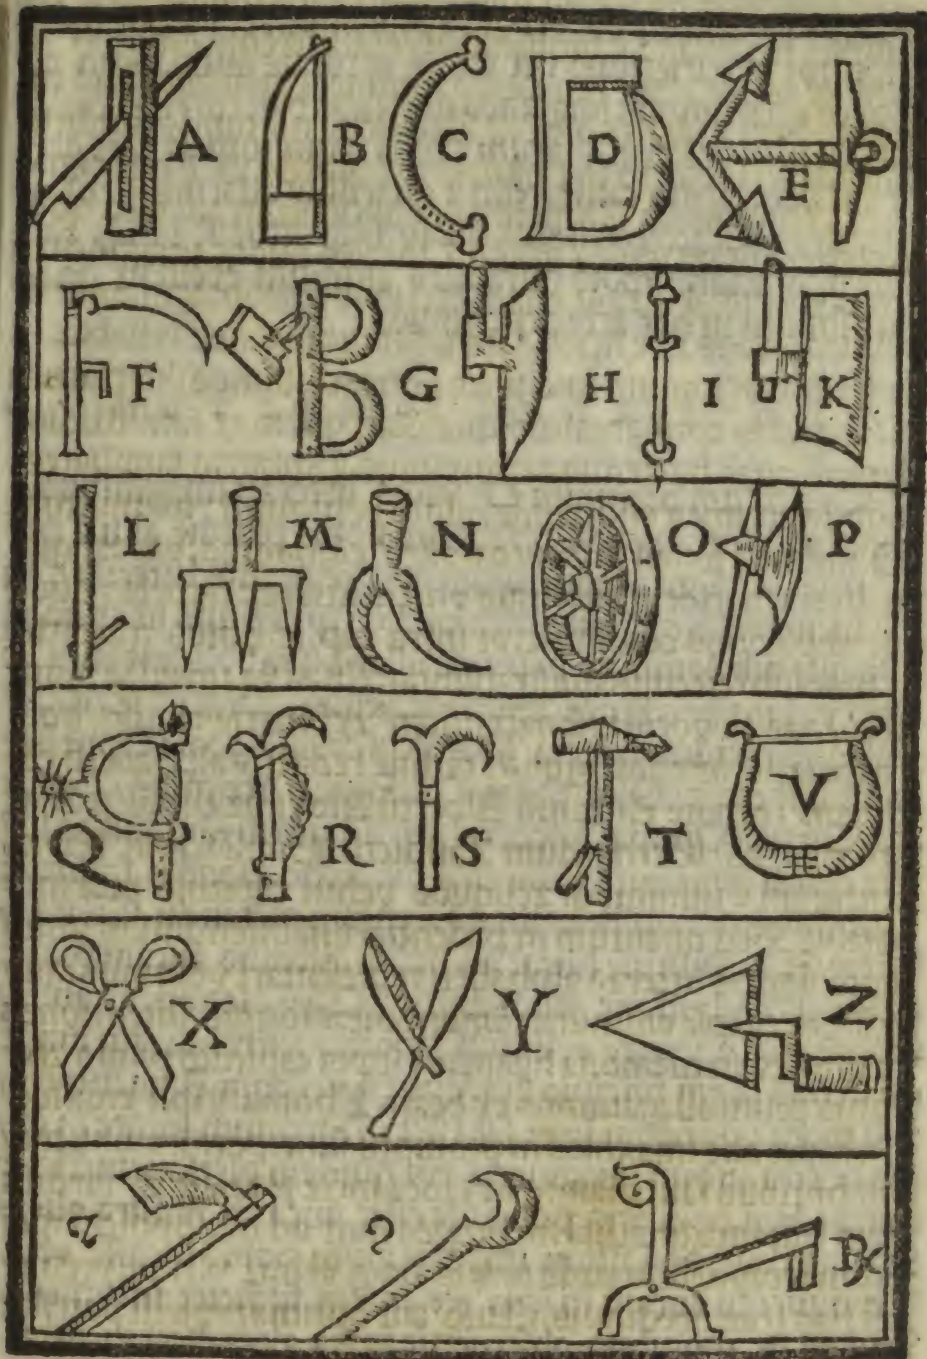 A B C D E
F G H I K
L M N O P
Q R S T V
X Y Z
ꝛ ? ℞